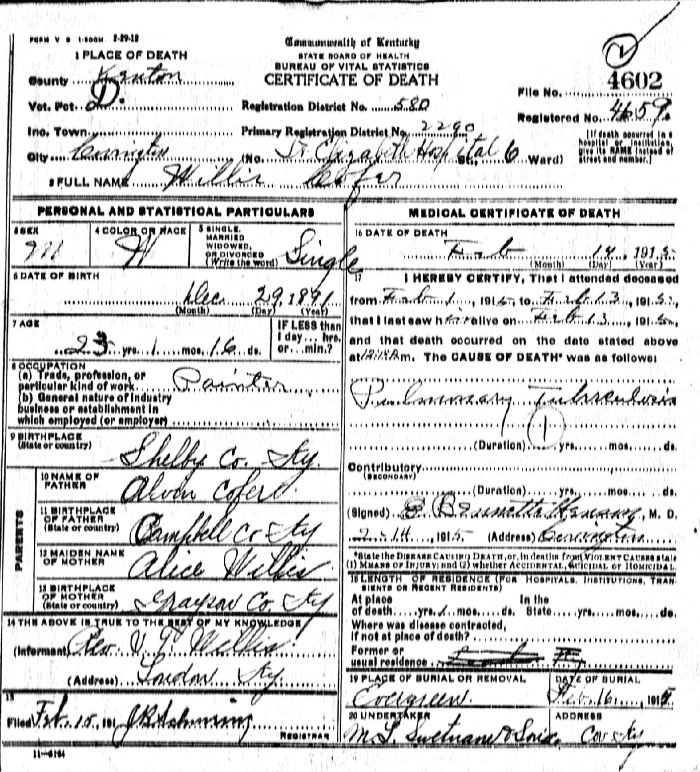 FORM V S 1-500M. 2-29-12
Commonwealth of Kentucky
STATE BOARD OF HEALTH
BUREAU OF VITAL STATISTICS
CERTIFICATE OF DEATH
1 PLACE OF DEATH
County Kenton
File No. 4602
Vot. Pct. D.
Registration District No. 580
Registered No. 4659
Inc. Town
Primary Registration District No. 2290
City Covington (No. St Elizabeth Hospital St., 6 Ward)
[If death occurred in a
hospital or institution,
give its NAME instead of
street and number.]
2 FULL NAME Willis Cofer
PERSONAL AND STATISTICAL PARTICULARS
3 SEX
M
4 COLOR OR RACE
W
5 SINGLE,
MARRIED
WIDOWED,
OR DIVORCED
(Write the word) Single
6 DATE OF BIRTH
Dec 29, 1891
(Month) (Day) (Year)
7 AGE
23 yrs. 1 mos. 16 ds.
IF LESS than
1 day... hrs.
or... min.?
8 OCCUPATION
(a) Trade, profession, or
particular kind of work Painter
(b) General nature of industry
business or establishment in
which employed (or employer)
9 BIRTHPLACE
(State or country) Shelby Co. Ky.
PARENTS
10 NAME OF
FATHER Alvin Cofer
11 BIRTHPLACE
OF FATHER
(State or country) Campbell Co Ky
12 MAIDEN NAME
OF MOTHER Alice Willis
13 BIRTHPLACE
OF MOTHER
(State or country) Grayson Co Ky
14 THE ABOVE IS TRUE TO THE BEST OF MY KNOWLEDGE
(Informant) Rev. Willis
(Address) London Ky
15
Filed Feb. 15, 191
REGISTRAR
11-6184
MEDICAL CERTIFICATE OF DEATH
16 DATE OF DEATH
Feb 14, 1915
(Month) (Day) (Year)
17 I HEREBY CERTIFY, That I attended deceased
from Feb 1, 1915, to Feb 13, 1915,
that I last saw him alive on Feb 13, 1915,
and that death occurred on the date stated above
at m. The CAUSE OF DEATH* was as follows:
Pulmonary Tuberculosis
1
(Duration) yrs. mos. ds.
Contributory
(SECONDARY)
(Duration) yrs. mos. ds.
(Signed) M. D.
2-14, 1915 (Address) Covington
*State the DISEASE CAUSING DEATH, or, in deaths from VIOLENT CAUSES state
(1) MEANS OF INJURY; and (2) whether ACCIDENTAL, SUICIDAL or HOMICIDAL.
18 LENGTH OF RESIDENCE (FOR HOSPITALS, INSTITUTIONS, TRAN
SIENTS OR RECENT RESIDENTS)
At place In the
of death yrs. 1 mos. ds. State yrs. mos. ds.
Where was disease contracted,
If not at place of death?
Former or
usual residence Ky
19 PLACE OF BURIAL OR REMOVAL
Evergreen
DATE OF BURIAL
Feb. 16, 1915
20 UNDERTAKER
M. L. Swetnam & Sons,
ADDRESS
Cov Ky